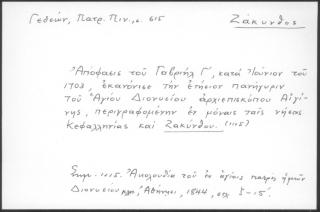 Γεδεών, Πατρ. Πιν., σ. 615
Ζάκυνθος
Ἀπόφασις τοῦ Γαβριὴλ Γ΄, κατὰ Ἰούνιον τοῦ
1703, ἐκανόνισε τὴν ἐτήσιον πανήγυριν
τοῦ Ἁγίου Διονυσίου ἀρχιεπισκόπου Αἰγί-
νης, περιγραφομένην ἐν μόναις ταῖς νήσοις
Κεφαλληνίας καὶ Ζακύνθου. (1115)
Σημ. 1115. Ἀκολουθία τοῦ ἐν ἁγίοις πατρὸς ἡμῶν
Διονυσίου κλπ., Ἀθήνησι, 1844, σελ. ζ-ιε΄.